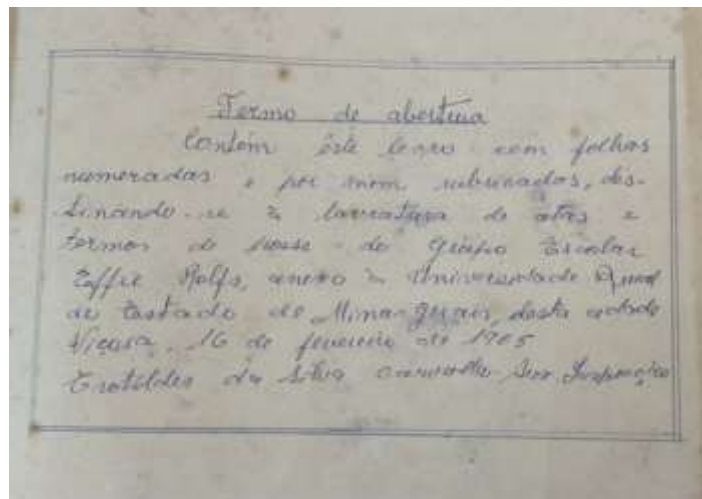 Termo de abertura
Contém êste livro cem folhas
numeradas e por mim rubricadas, des-
tinando-se à lavratura de atas e
termos de posse do Grupo Escolar
Effie Rolfs, anexo à Universidade Rural
do Estado de Minas Gerais, desta cidade
Viçosa, 16 de fevereiro de
da Silva